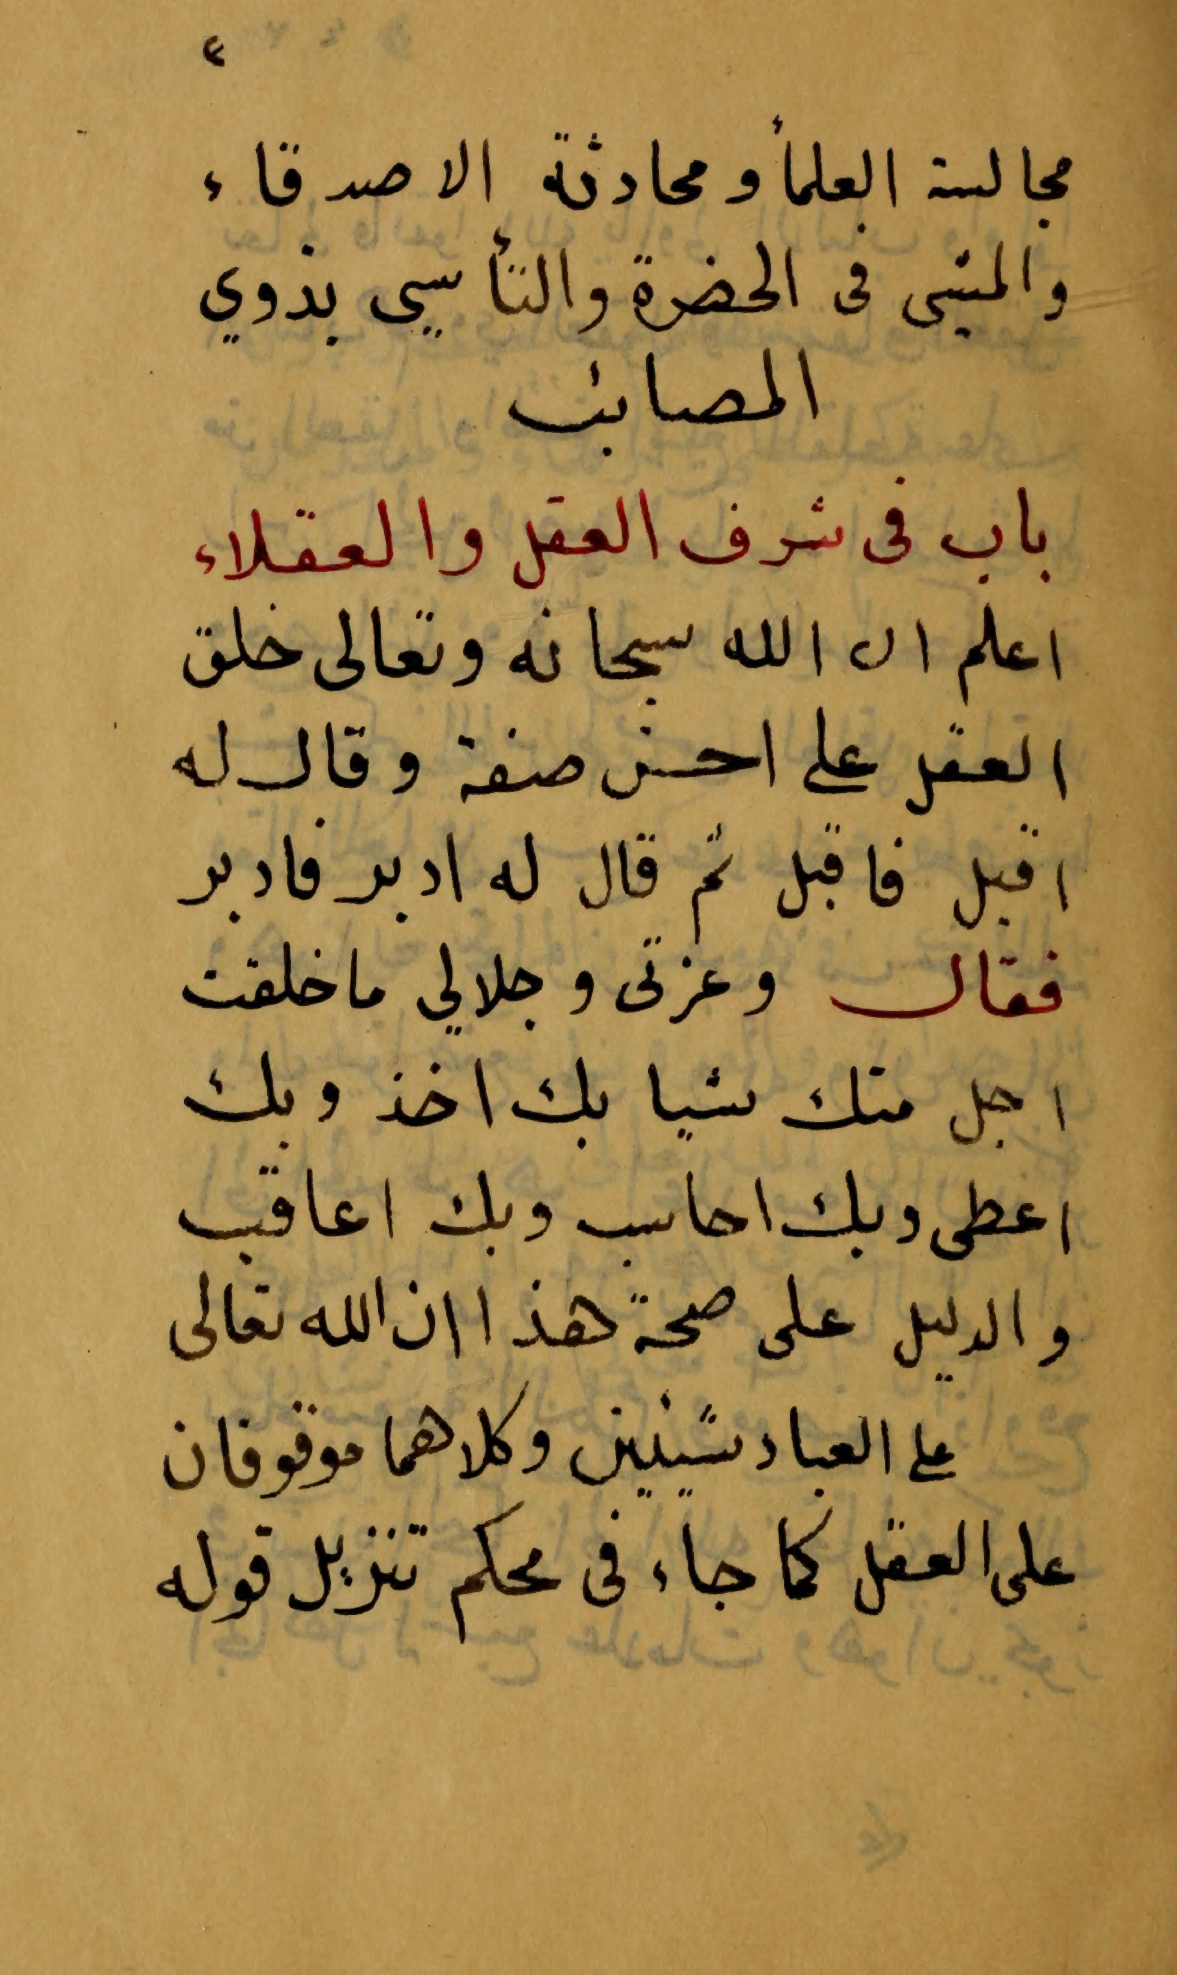 ٤
مجالسة العلمأ ومحادثة الاصدقاء
والمشى فى الحضرة والتأسيى بذوي
المصائب
باب فى شرف العقل والعقلاء
اعلم ان الله سبحانه وتعالى خلق
العقل على احسن صفة وقال له
اقبل فاقبل ثم قال له ادبر فادبر
فقال وعزتى وجلالي ما خلقت
اجل منك شيا بك اخذ وبك
اعطى وبك احاسب وبك اعاقب
والدليل على صحة هذا ان الله تعالى
على العباد شيئين وكلاهما موقوفان
على العقل كما جاء فى محكم تنزيل قوله